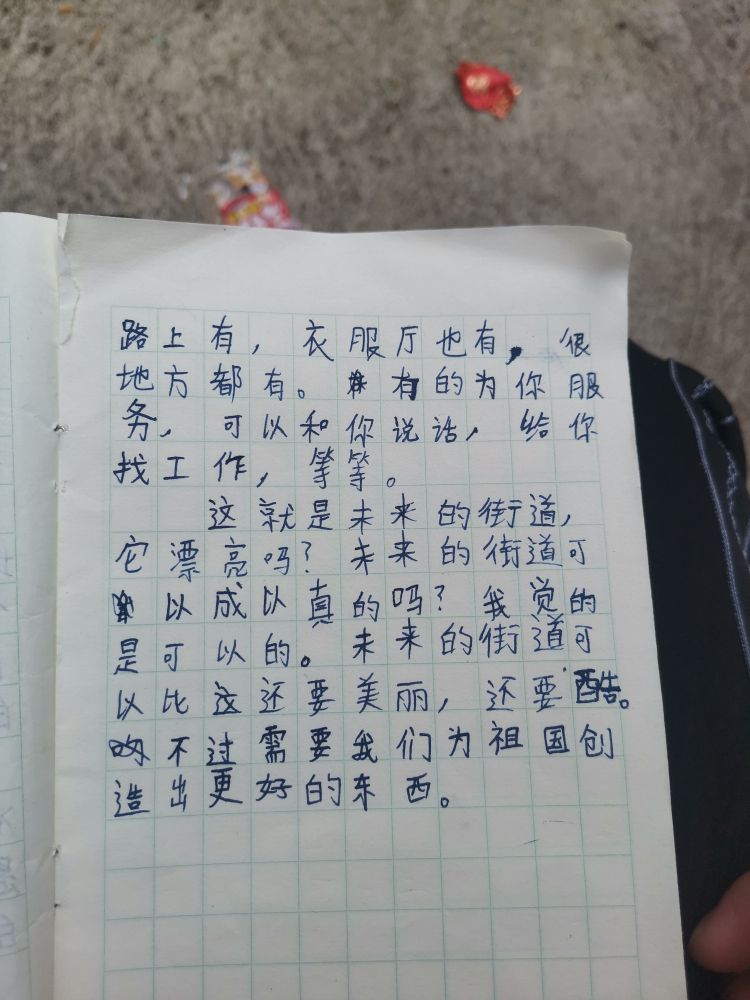 路上有，衣服厅也有，很
地方都有。有的为你服
务，可以和你说话，给你
找工作，等等。
这就是未来的街道，
它漂亮吗？未来的街道可
以成以真的吗？我觉的
是可以的。未来的街道可
以比这还要美丽，还要酷。
不过需要我们为祖国创
造出更好的东西。